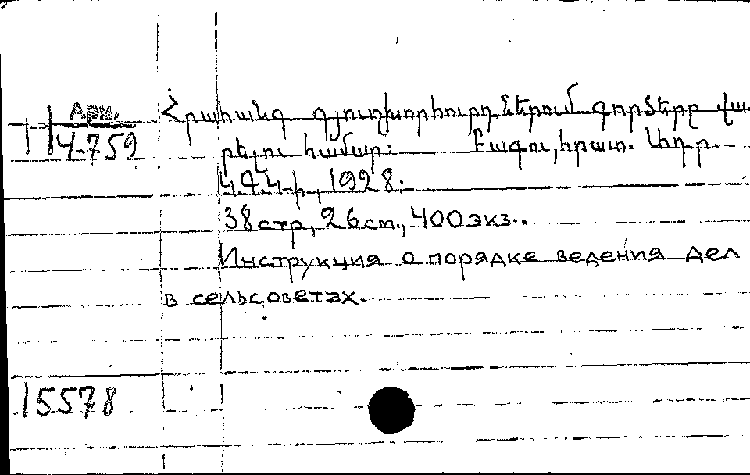 Арм.
4-759
Հրահանգ գյուղխորհուրդներում գործերը վա
րելու համար: Բագու, հրատ. Ադր.
ԿԳԿ-ի, 1928:
38 стр, 26 см., 400 экз..
Инструкция о порядке ведения дел
в сельсоветах.
15578